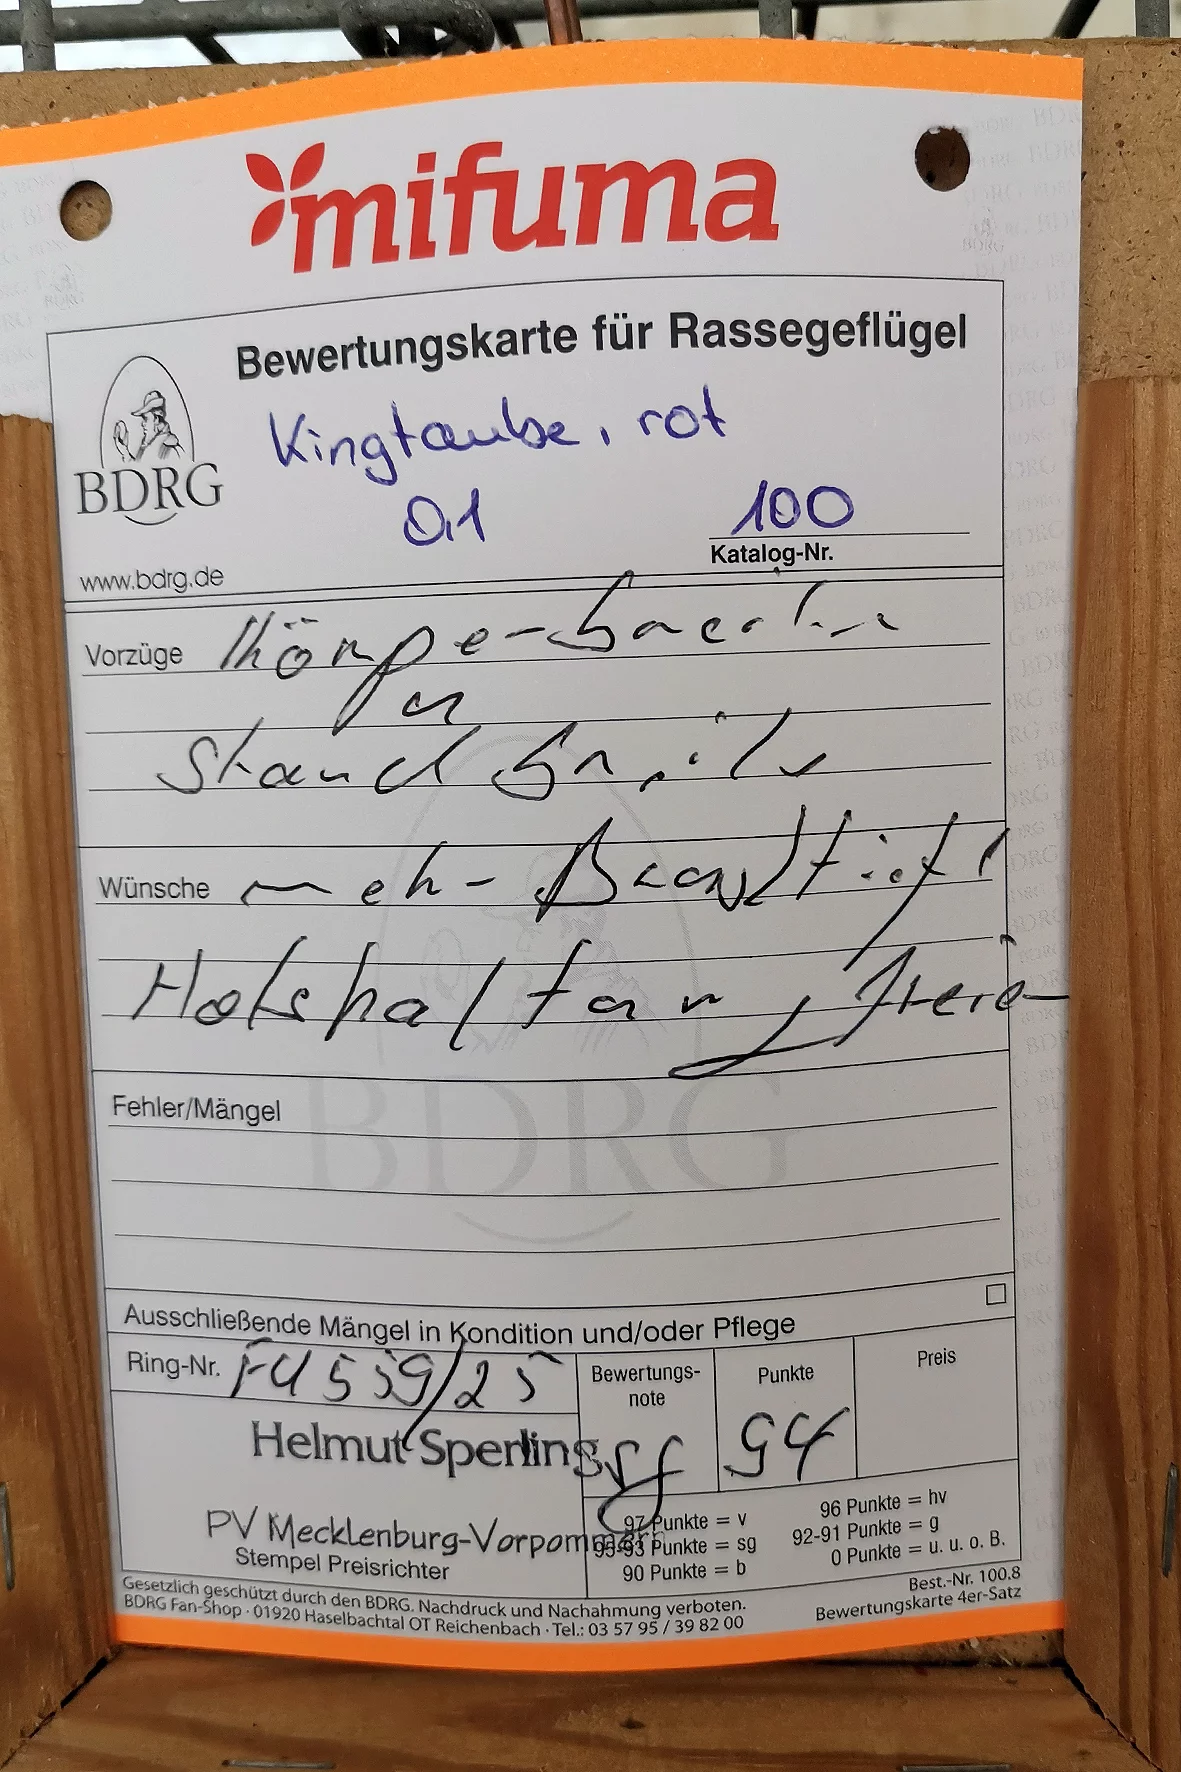 mifuma
Bewertungskarte für Rassegeflügel
BDRG
www.bdrg.de
Kingtaube, rot
0,1
100
Katalog-Nr.
Vorzüge
Stand
Wünsche mehr Brusttiefe
Halshaltung freier
BDRG
Fehler/Mängel
Ausschließende Mängel in Kondition und/oder Pflege
Ring-Nr. FU 559/25
Bewertungs-
note
sg
Punkte
94
Preis
Helmut Sperling
PV Mecklenburg-Vorpommern
Stempel Preisrichter
97 Punkte = v
95-93 Punkte = sg
90 Punkte = b
96 Punkte = hv
92-91 Punkte = g
0 Punkte = u. u. o. B.
Gesetzlich geschützt durch den BDRG. Nachdruck und Nachahmung verboten.
BDRG Fan-Shop · 01920 Haselbachtal OT Reichenbach · Tel.: 03 57 95 / 39 82 00
Best.-Nr. 100.8
Bewertungskarte 4er-Satz